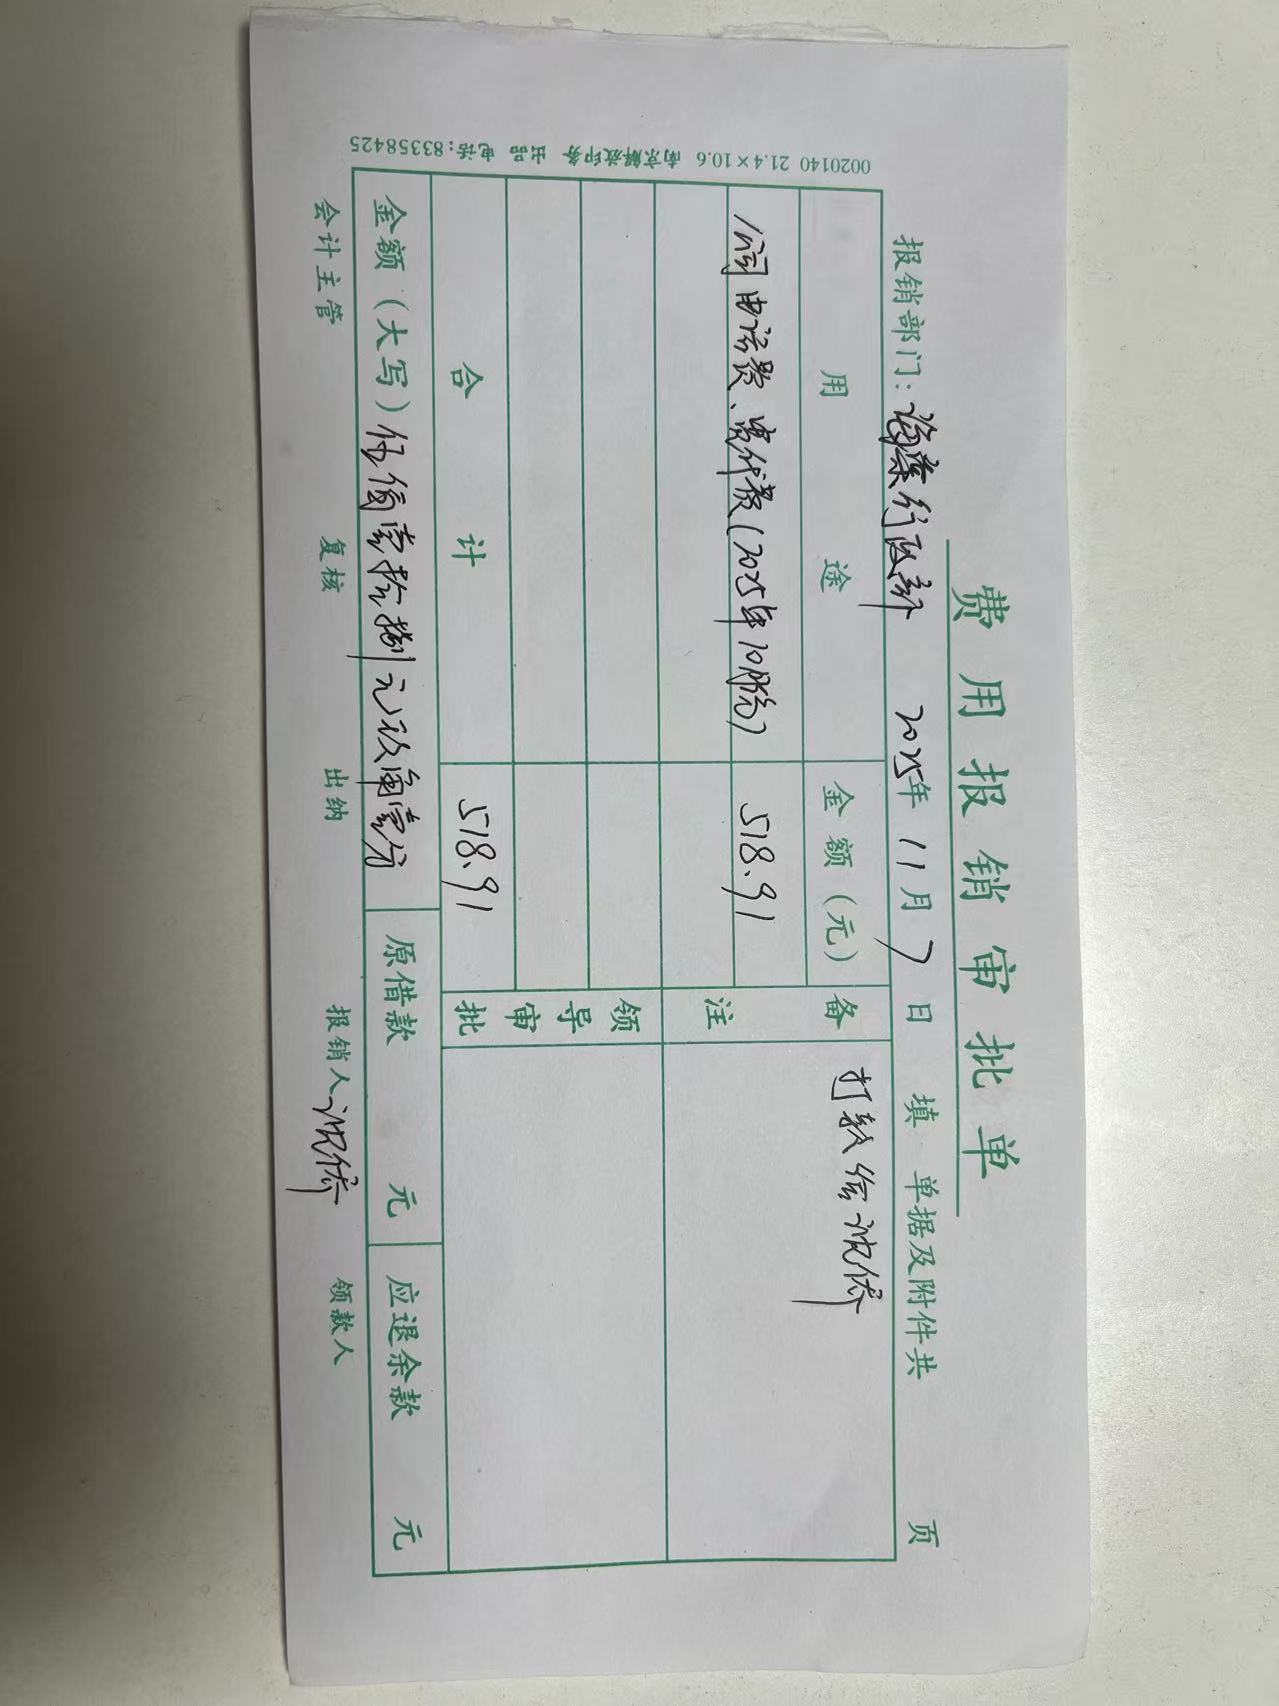 费用报销审批单
报销部门：海棠行政部 2025年 11月 7日 填 单据及附件共 页
用途 金额（元） 备注 打款给沈侨
电话费、宽代费（2025年10月份） 518.91
领导审批
合计 518.91
金额（大写）伍佰壹拾捌元玖角壹分 原借款 元 应退余款 元
会计主管 复核 出纳 报销人 沈侨 领款人
0020140 21.4×10.6 南京解放印务 出品 电话：83358425